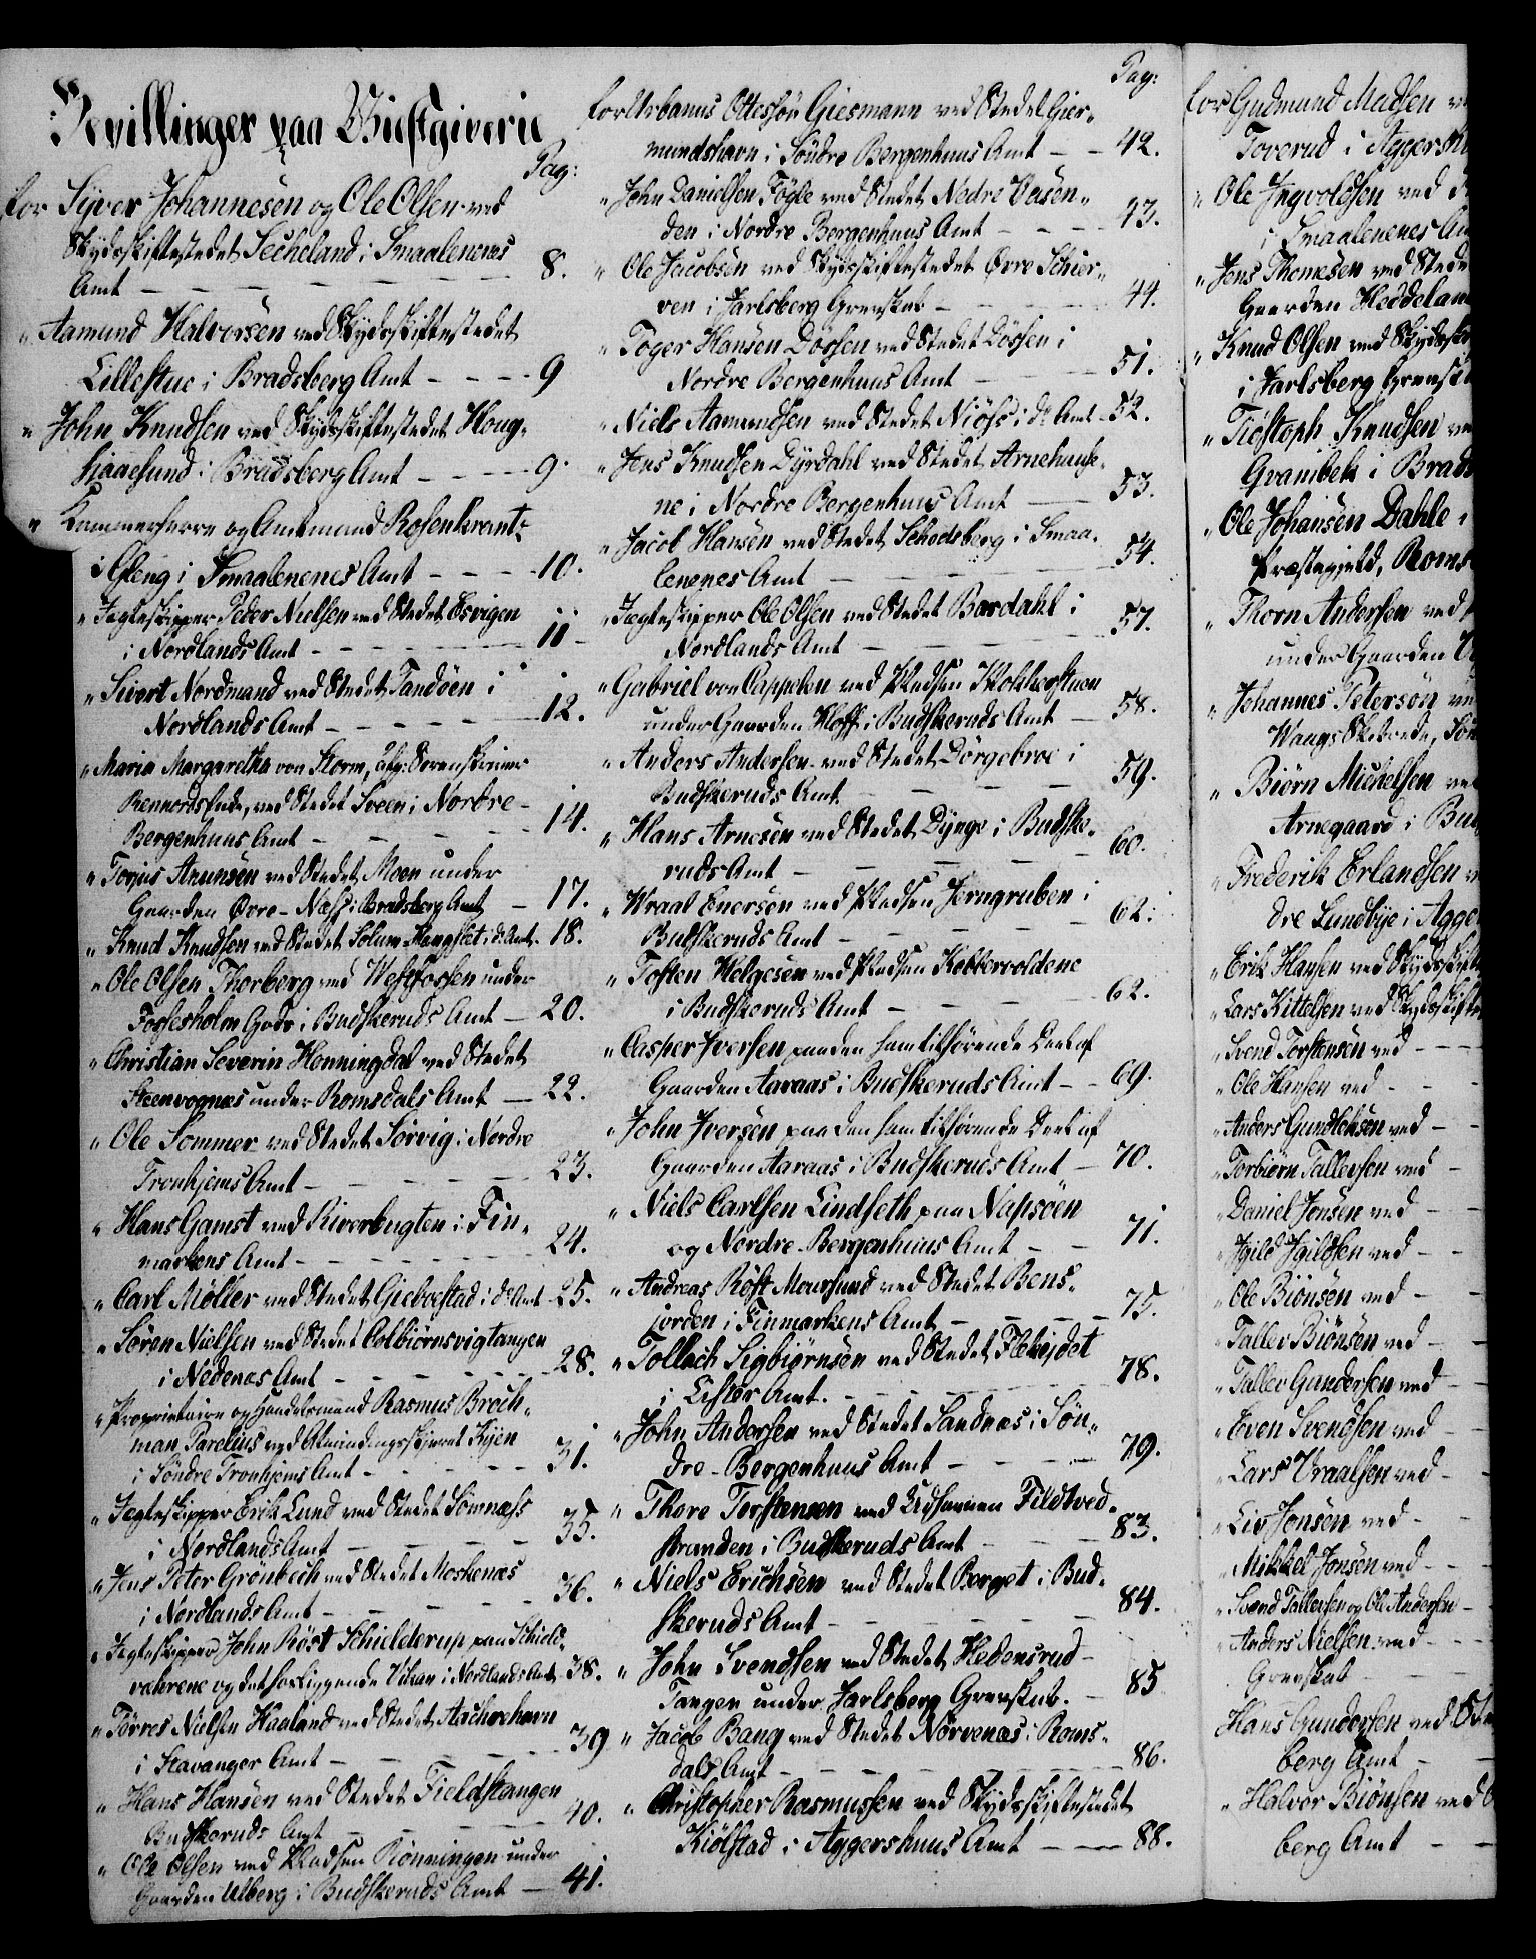 Bevillinger paa Giestgiverie
Pag:
for Syver Johannesen og Ole Olsen ved
Skydsskiftestedet Secheland i Smaalenenes
Amt 8.
" Aamund Halvorsen ved Skydsskiftestedet
Lillestue i Bradsberg Amt 9
" John Knudsen ved Skydsskiftestedet Houg-
sund i Bradsberg Amt 9.
" Kammerherre og Amtmand Rosenkrantz
i Gleng i Smaalenenes Amt 10.
" Jægteskipper Peder Nielsen ved Stedet Esvigen
i Nordlands Amt 11
" Sivert Nordmand ved Stedet Tandöen i
Nordlands Amt 12.
" Maria Margaretha von Storm, afg: Sorenskriver
ved Stedet Sveen i Nordre
Bergenhuus Amt 14.
" Torjus Anunsen ved Stedet Moen under
Gaarden Øvre-Næss i Bradsberg Amt 17.
" Knud Knudsen ved Stedet Solum i do Amt 18.
" Ole Olsen Thorberg ved Westfossen under
Fossesholm Gods i Budskeruds Amt 20.
" Christian Severin Honningdal ved Stedet
Steenvognæs under Romsdals Amt 22.
" Ole Sommer ved Stedet Sørvig i Nordre
Tronhjems Amt 23.
" Hans Gamst ved Riverbugten i Fin-
markens Amt 24.
" Carl Møller ved Stedet Giebostad i do Amt 25.
" Søren Nielsen ved Stedet Colbiörnsvigtangen
i Nedenæs Amt 28.
" Proprietaire og Handelsmand Rasmus Broch-
man Parelius ved Almindingsskjæret Kijen
i Söndre Tronhjems Amt 31.
" Jægteskipper Erik Lund ved Stedet Sömnæss
i Nordlands Amt 35.
" Jens Peter Grönbech ved Stedet Moskenæs
i Nordlands Amt 36.
" Jægteskipper John Röst Schielderup paa Schield-
vahrene og det hosliggende Vikan i Nordlands Amt 38.
" Törres Nielsen Haaland ved Stedet Aachrehavn
i Stavanger Amt 39
" Hans Hansen ved Stedet Fieldstangen
Budskeruds Amt 40.
" Ole Olsen ved Pladsen Rönningen under
Gaarden Ulberg i Budskeruds Amt 41.
Pag:
for Urbanus Ottessön Giesmann ved Stedet Gier-
mundshavn i Söndre Bergenhuus Amt 42.
" John Danielsen Fögle ved Stedet Nedre Vasen-
den i Nordre Bergenhuus Amt 43.
" Ole Jacobsen ved Skydsskiftestedet Øvre Schier-
ven i Jarlsberg Grevskab 44.
" Toger Hansen Dössen ved Stedet Dössen i
Nordre Bergenhuus Amt 51.
" Niels Aamundsen ved Stedet Niöss i do Amt 52.
" Jens Knudsen Dyrdahl ved Stedet Arnehuuse-
ne i Nordre Bergenhuus Amt 53.
" Jacob Hansen ved Stedet Schodsberg i Smaa-
lenenes Amt 54.
" Jægteskipper Ole Olsen ved Stedet Bardahl i
Nordlands Amt 57.
" Gabriel von Cappelen ved Pladsen Kohlkerstuen
under Gaarden Hoff i Budskeruds Amt 58.
" Anders Andersen ved Stedet Dörgebroe i
Budskeruds Amt 59.
" Hans Arnesen ved Stedet Dynge i Budske-
ruds Amt 60.
" Wraal Enersen ved Pladsen Jerngruben i
Budskeruds Amt 62.
" Tosten Helgesen ved Pladsen Kobbervoldene
i Budskeruds Amt 62.
" Casper Iversen paa den ham tilhørende Deel af
Gaarden Aaraas i Budskeruds Amt 69.
" John Iversen paa den ham tilhørende Deel af
Gaarden Aaraas i Budskeruds Amt 70.
" Niels Carlsen Lindseth paa Napsöen
og Nordre Bergenhuus Amt 71.
" Andreas Röst Moursund ved Stedet Bens-
jorden i Finmarkens Amt 75.
" Tollach Sigbiörnsen ved Stedet Flekejdet
i Lister Amt. 78.
" John Andersen ved Stedet Sandnæs i Søn-
dre-Bergenhuus Amt 79.
" Thore Torstensen ved Udhavnen Fildtved-
stranden i Budskeruds Amt 83.
" Niels Erichsen ved Stedet Berget i Bud-
skeruds Amt 84.
" John Svendsen ved Stedet Hedensrud-
Tangen under Jarlsberg Grevskab. 85
" Jacob Bang ved Stedet Norvenæs i Roms-
dals Amt 86.
" Christopher Rasmussen ved Skydsskiftestedet
Kiölstad i Aggershuus Amt 88.
for Gudmund Madsen
Toverud i Aggersh
" Ole Ingvoldsen ved
i Smaalenenes Am
" Jens Thomesen ved Stede
Gaarden Heddelan
" Knud Olsen ved Skydssk
i Jarlsberg Grevsk
" Tiöstoph Knudsen ve
Granibek i Brads
" Ole Johansen Dahle
Præstegjeld, Roms
" Thorn Andersen ved
under Gaarden
" Johannes Petersön ve
Wangs Skebrede, Sön
" Biörn Michelsen ve
Arnegaard i Bu
" Frederik Erlandsen
dre Lundbye i Agge
" Erik Hansen ved Skydsskift
" Lars Kittelsen ved Skydsskifte
" Svend Torstensen ved
" Ole Hansen ved
" Anders Gundersen ved
" Torbiörn Tallevsen ved
" Daniel Jonsen ved
" Igild Igildsen ved
" Ole Biönsen ved
" Tallev Biönsen ved
" Tallev Gundersen ved
" Even Svendsen ved
" Lars Vraalsen ved
" Liv Jonsen ved
" Mikkel Jonsen ved
" Svend Tallevsen og Ole Andersen
" Anders Nielsen ved
Grevskab
Hans Gundersen ved
berg Amt
" Halvor Biönsen ved
berg Amt